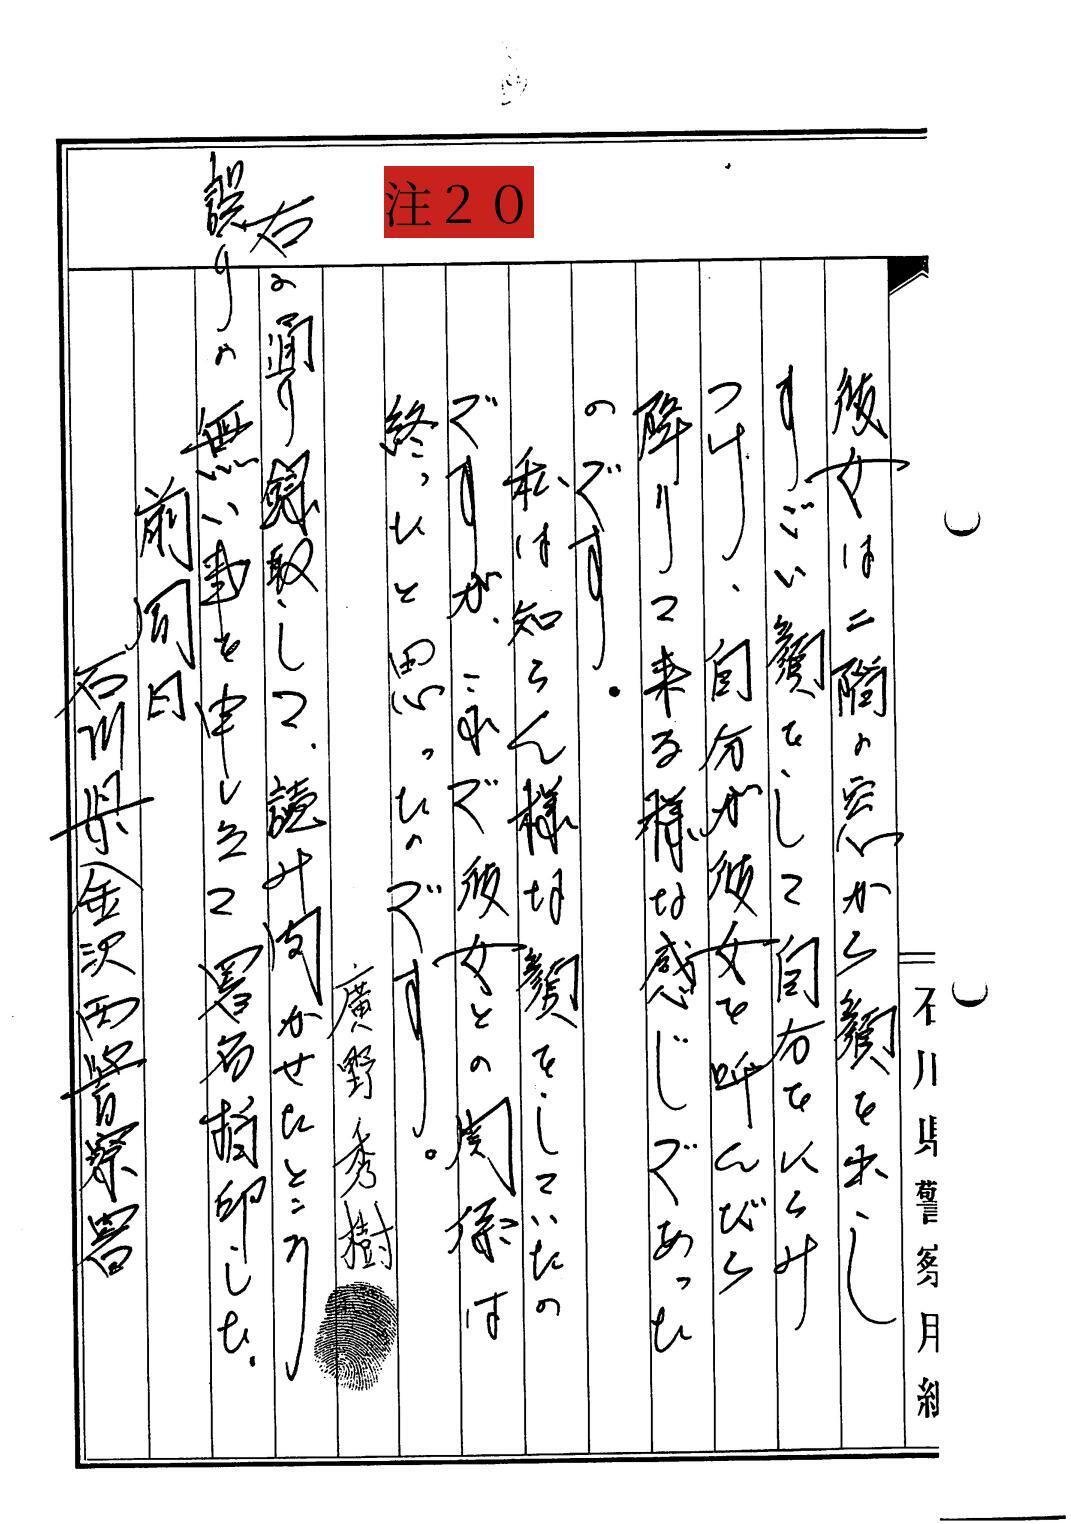 注20
彼女は二階の窓から顔を出し
すごい顔をして自分をにらみ
つけ、自分が彼女を呼んだら
降りて来る様な感じであった
のです。
私は知らん様な顔をしていたの
ですが、これで彼女との関係は
終ったと思ったのです。
廣野秀樹
右の通り録取して、読み聞かせたところ
誤りの無い事を申し立て署名指印した。
前同日
石川県金沢西警察署
石川県警察用紙